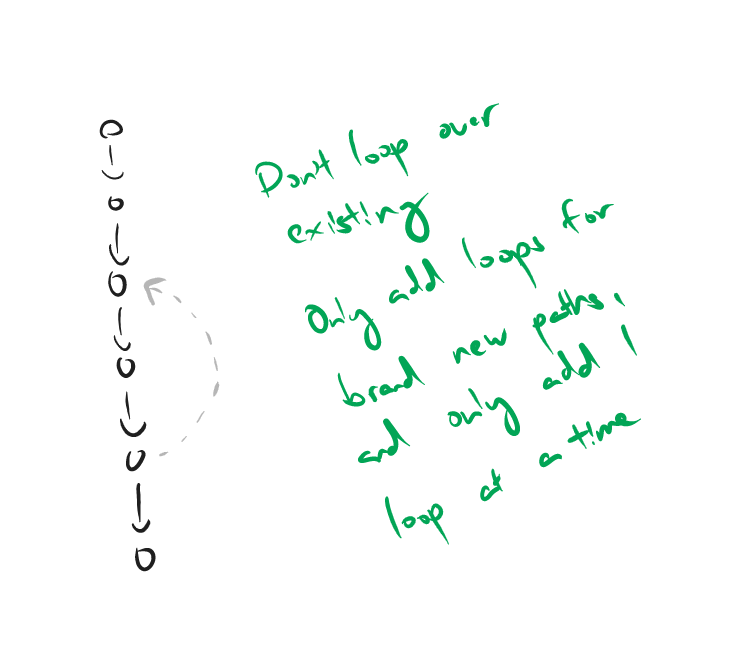 Don't loop over
existing
Only add loops for
brand new paths,
and only add 1
loop at a time